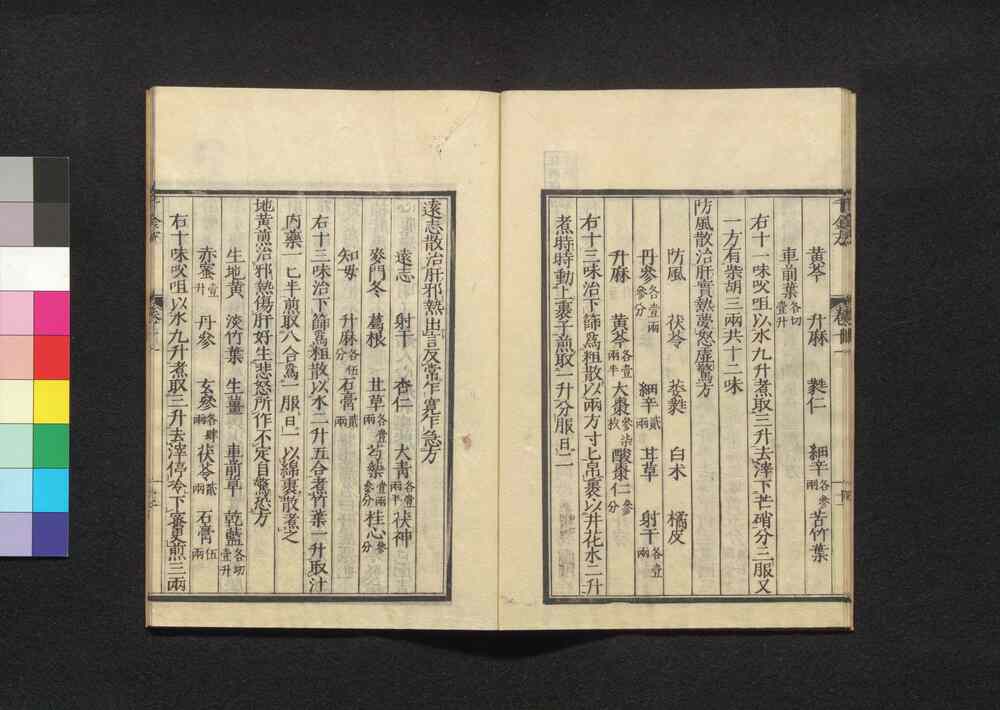 黃芩 升麻 蕤仁 細辛各參兩 苦竹葉
車前葉各切壹升
右十一味㕮咀以水九升煮取三升去滓下芒硝分三服又
一方有柴胡三兩共十二味
防風散治肝實熱夢怒虛驚方
防風 茯苓 葳蕤 白朮 橘皮
丹參各壹兩參分 細辛貳兩 甘草 射干各壹兩
升麻 黃芩各壹兩半 大棗參柒枚 酸棗仁參分
右十三味治下篩爲粗散以兩方寸匕帛裹以井花水二升
煮時時動上裹子煎取一升分服日二
遠志散治肝邪熱出言反常乍寬乍急方
遠志 射干 杏仁 大青各壹兩半 茯神
麥門冬 葛根 甘草各壹兩 芍藥壹兩參分 桂心參分
知母 升麻各伍分 石膏貳兩
右十三味治下篩爲粗散以水二升五合煮竹葉一升取汁
內藥一匕半煎取八合爲一服日一以綿裹散煮之
地黃煎治邪熱傷肝好生悲怒所作不定自驚恐方
生地黃 淡竹葉 生薑 車前草 乾藍各切壹升
赤蜜壹升 丹參 玄參各肆兩 茯苓貳兩 石膏伍兩
右十味㕮咀以水九升煮取三升去滓停冷下蜜更煎三兩